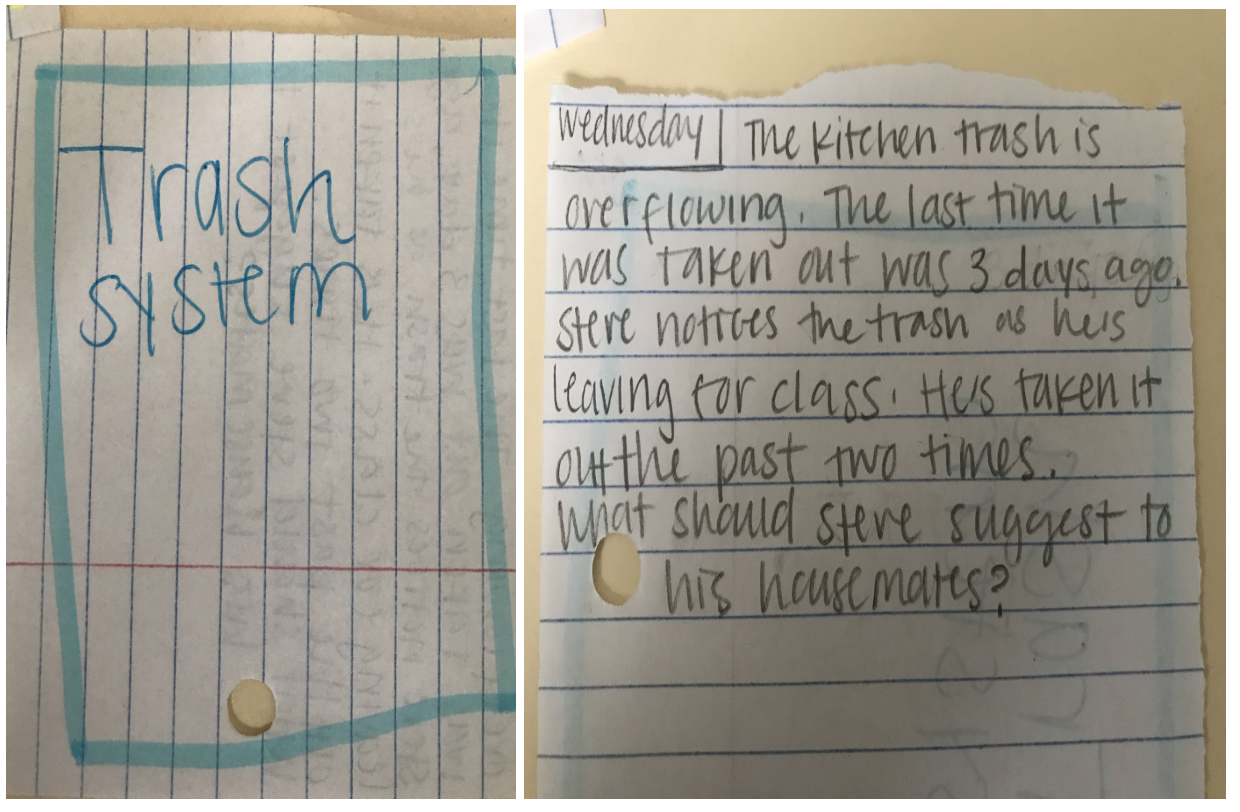 Trash
system
Wednesday The kitchen trash is
overflowing. The last time it
was taken out was 3 days ago.
Steve notices the trash as he is
leaving for class. He's taken it
out the past two times.
What should Steve suggest to
his housemates?